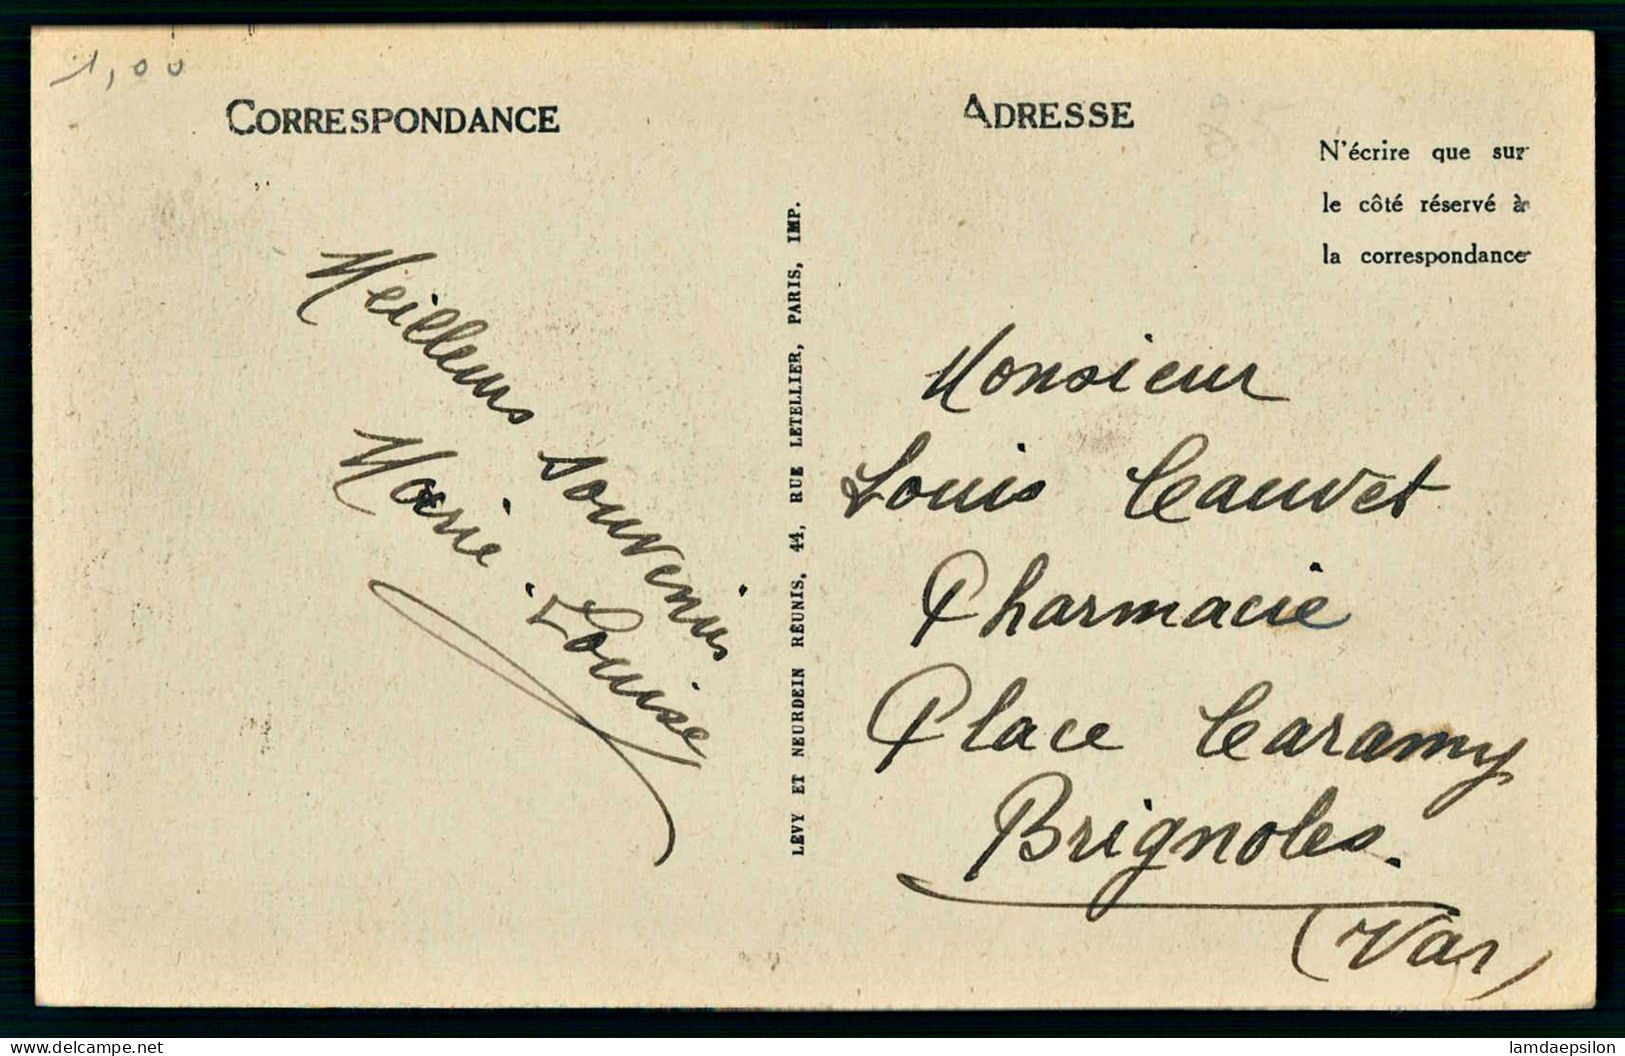 1,00
CORRESPONDANCE
Meilleurs souvenirs
Marie-Louise
LÉVY ET NEURDEIN RÉUNIS, 44, RUE LETELLIER, PARIS, IMP.
ADRESSE
N'écrire que sur
le côté réservé à
la correspondance
Monsieur
Louis Cauvet
Pharmacie
Place Caramy
Brignoles.
(Var)
delcampe.net
lamdaepsilon